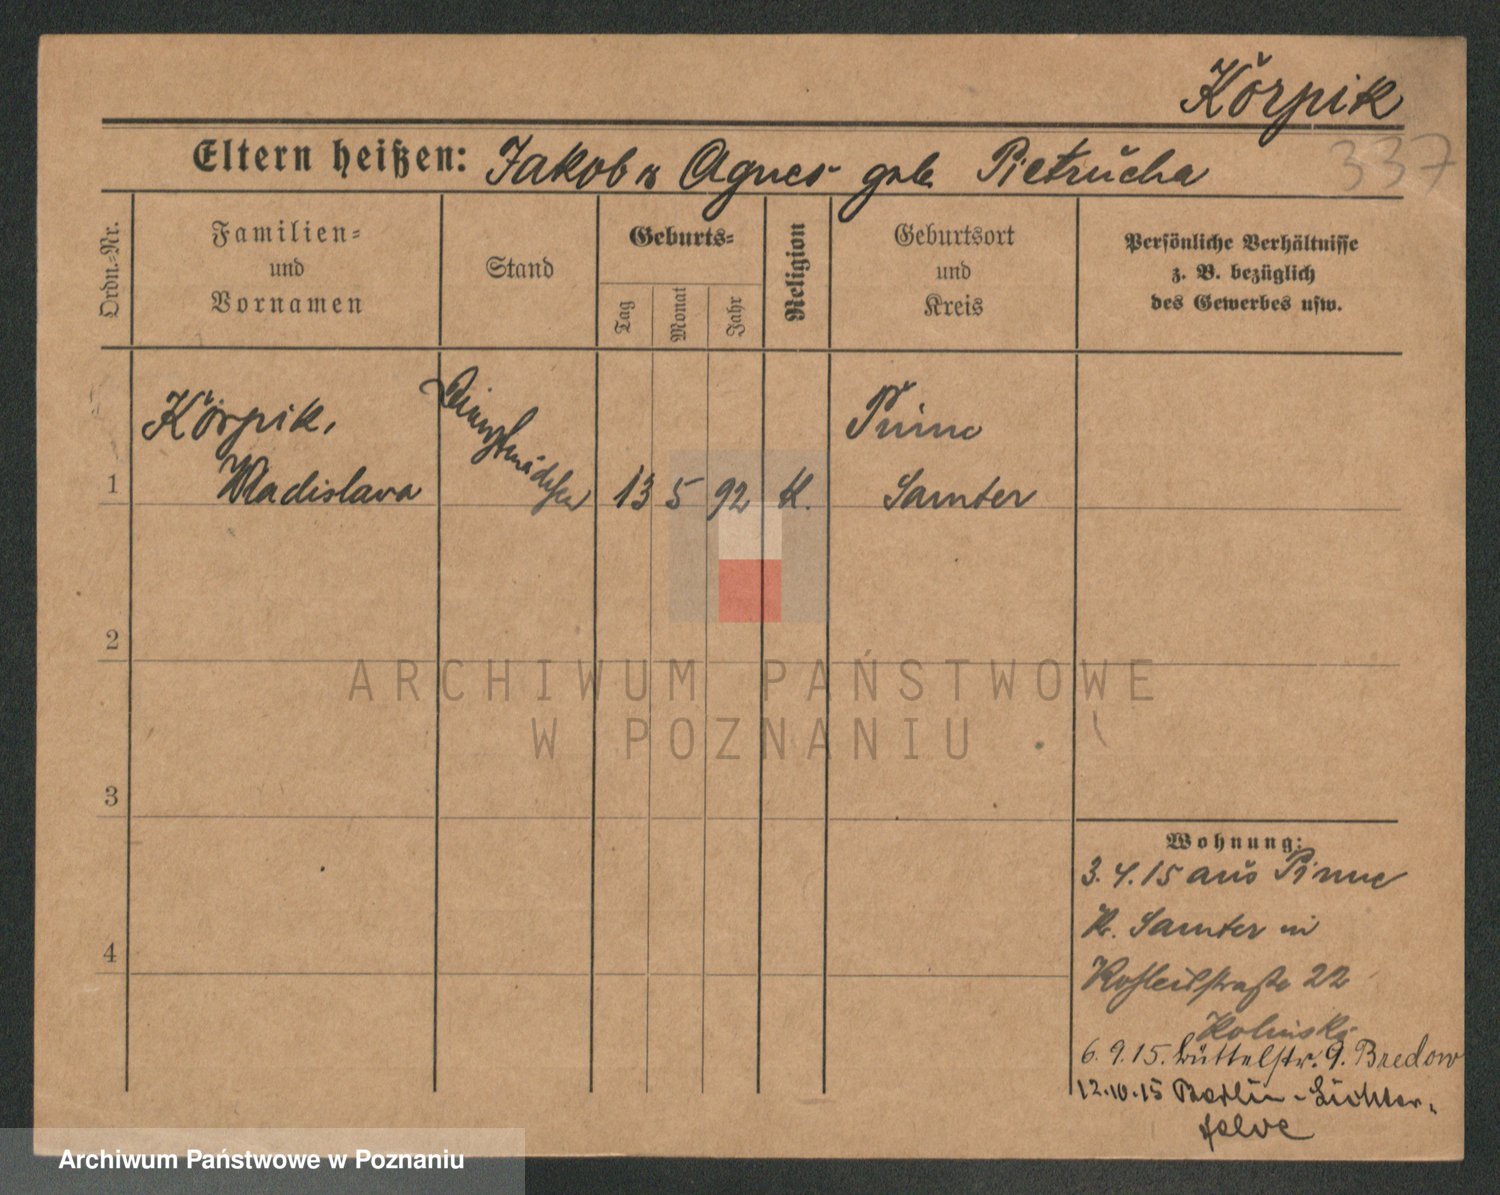 Kŏrpik
337
Eltern heißen: Jakob u Agnes geb. Pietrŭcha
Ordn.-Nr.
Familien=
und
Vornamen
Stand
Geburts=
Tag
Monat
Jahr
Religion
Geburtsort
und
Kreis
Persönliche Verhältnisse
z. B. bezüglich
des Gewerbes usw.
1
Kŏrpik,
Wladislava
Dienstmädchen
13 5 92 K.
Pinne
Samter
2
3
4
Wohnung:
3.4.15 aŭs Pinne
Kr. Samter in
22
6.9.15. Büttelstr. 9. Bredow
12.10.15 Berlin-Lichter-
felde
ARCHIWUM PAŃSTWOWE
W POZNANIU
Archiwum Państwowe w Poznaniu